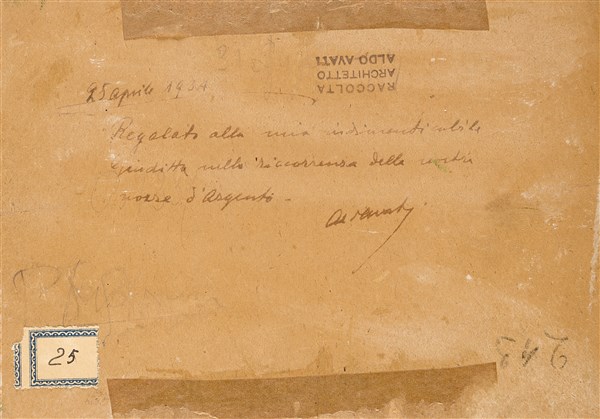 RACCOLTA
ARCHITETTO
ALDO AVATI
25 aprile 1934
Regalato alla mia indimenticabile
Giuditta nella ricorrenza delle nostre
nozze d'Argento.
Aldo Avati
25